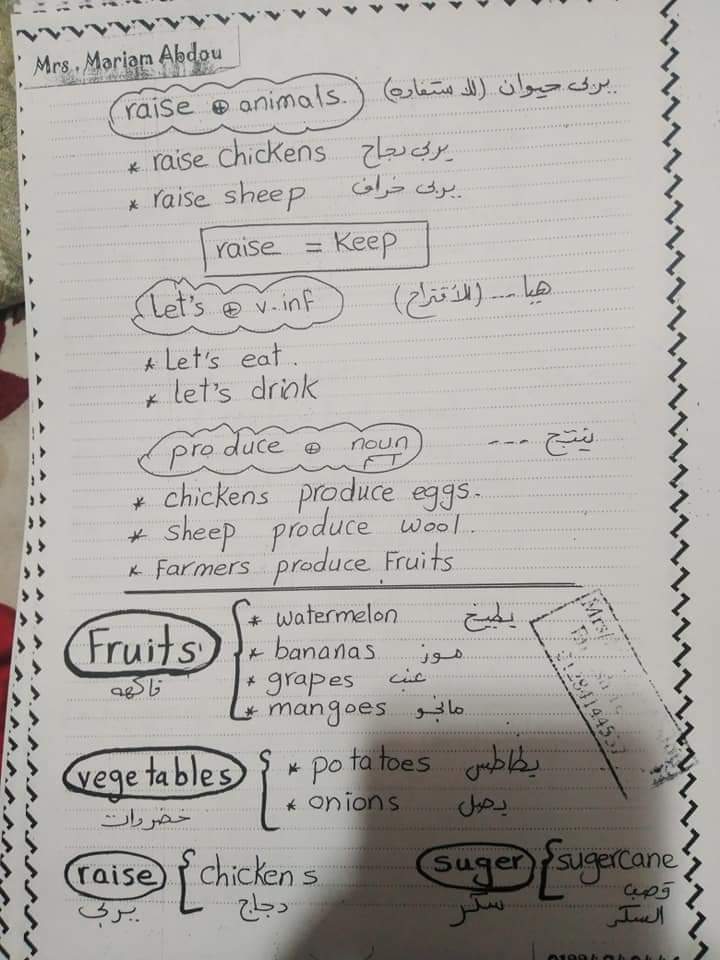 Mrs. Mariam Abdou
raise ⊕ animals. يربى حيوان (للاستفاده)
* raise chickens يربى دجاج
* raise sheep يربى خراف
raise = Keep
Let's ⊕ v.inf هيا ... (للأقتراح)
* Let's eat.
* let's drink
produce ⊕ noun ينتج ...
* chickens produce eggs.
* sheep produce wool.
* Farmers produce Fruits
Fruits فاكهه
* watermelon بطيخ
* bananas موز
* grapes عنب
* mangoes مانجو
vegetables خضروات
* potatoes بطاطس
* onions بصل
raise يربى
chickens دجاج
suger سكر
sugercane قصب السكر